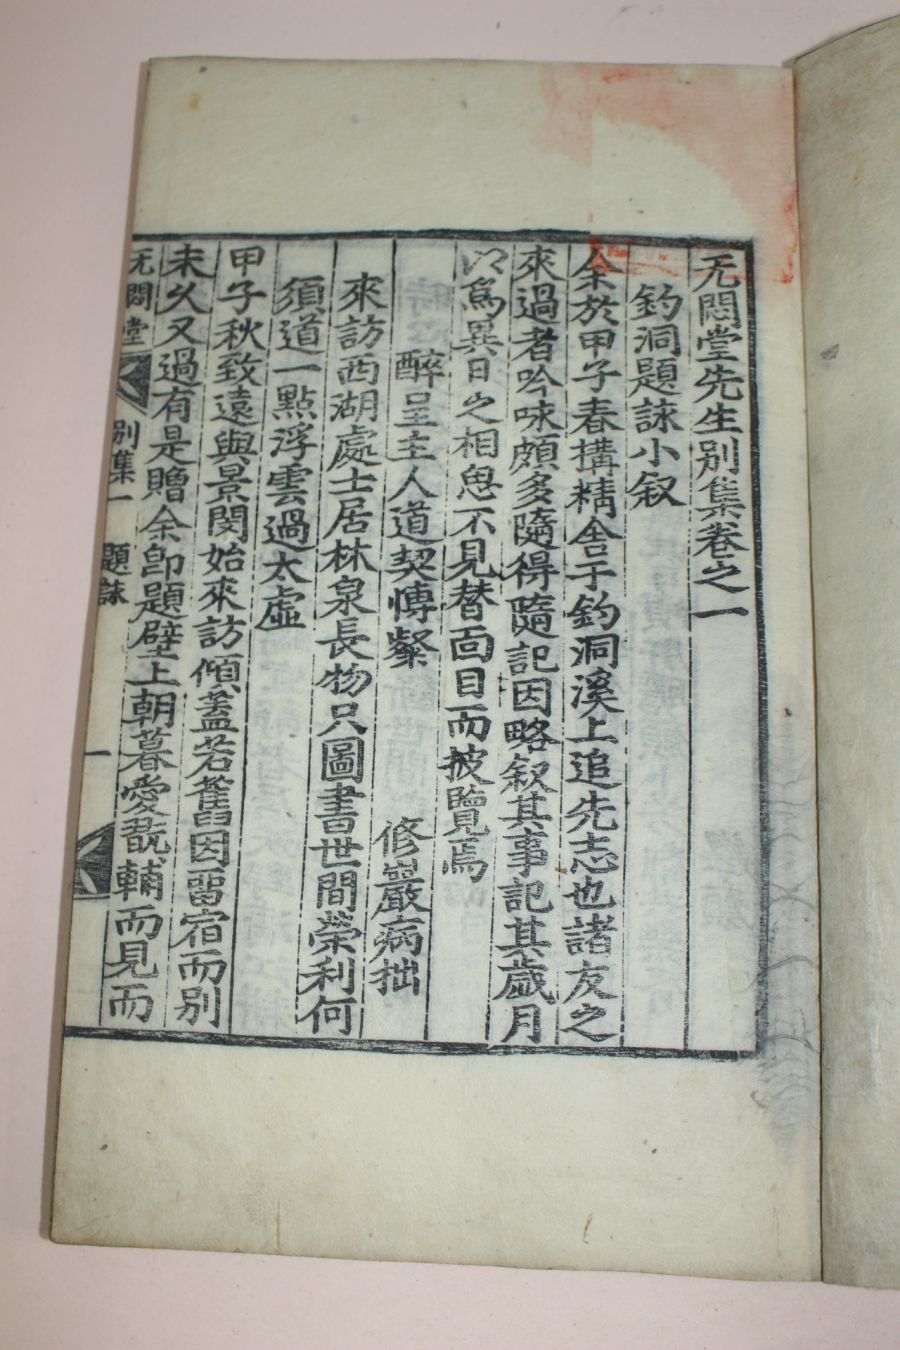 无悶堂先生別集卷之一
釣洞題詠小叙
余於甲子春搆精舎于釣洞溪上追先志也諸友之
來過者吟咏頗多隨得隨記因略叙其事記其歲月
以爲異日之相思不見替面目而披覽焉
醉呈主人道契愽粲
修巖病拙
來訪西湖處士居林泉長物只圖書世間榮利何
須道一點浮雲過太虛
甲子秋致遠與景閔始來訪傾盖若舊因留宿而別
未久又過有是贈余卽題壁上朝暮愛翫輔而見而
无悶堂
別集一
題詠
一